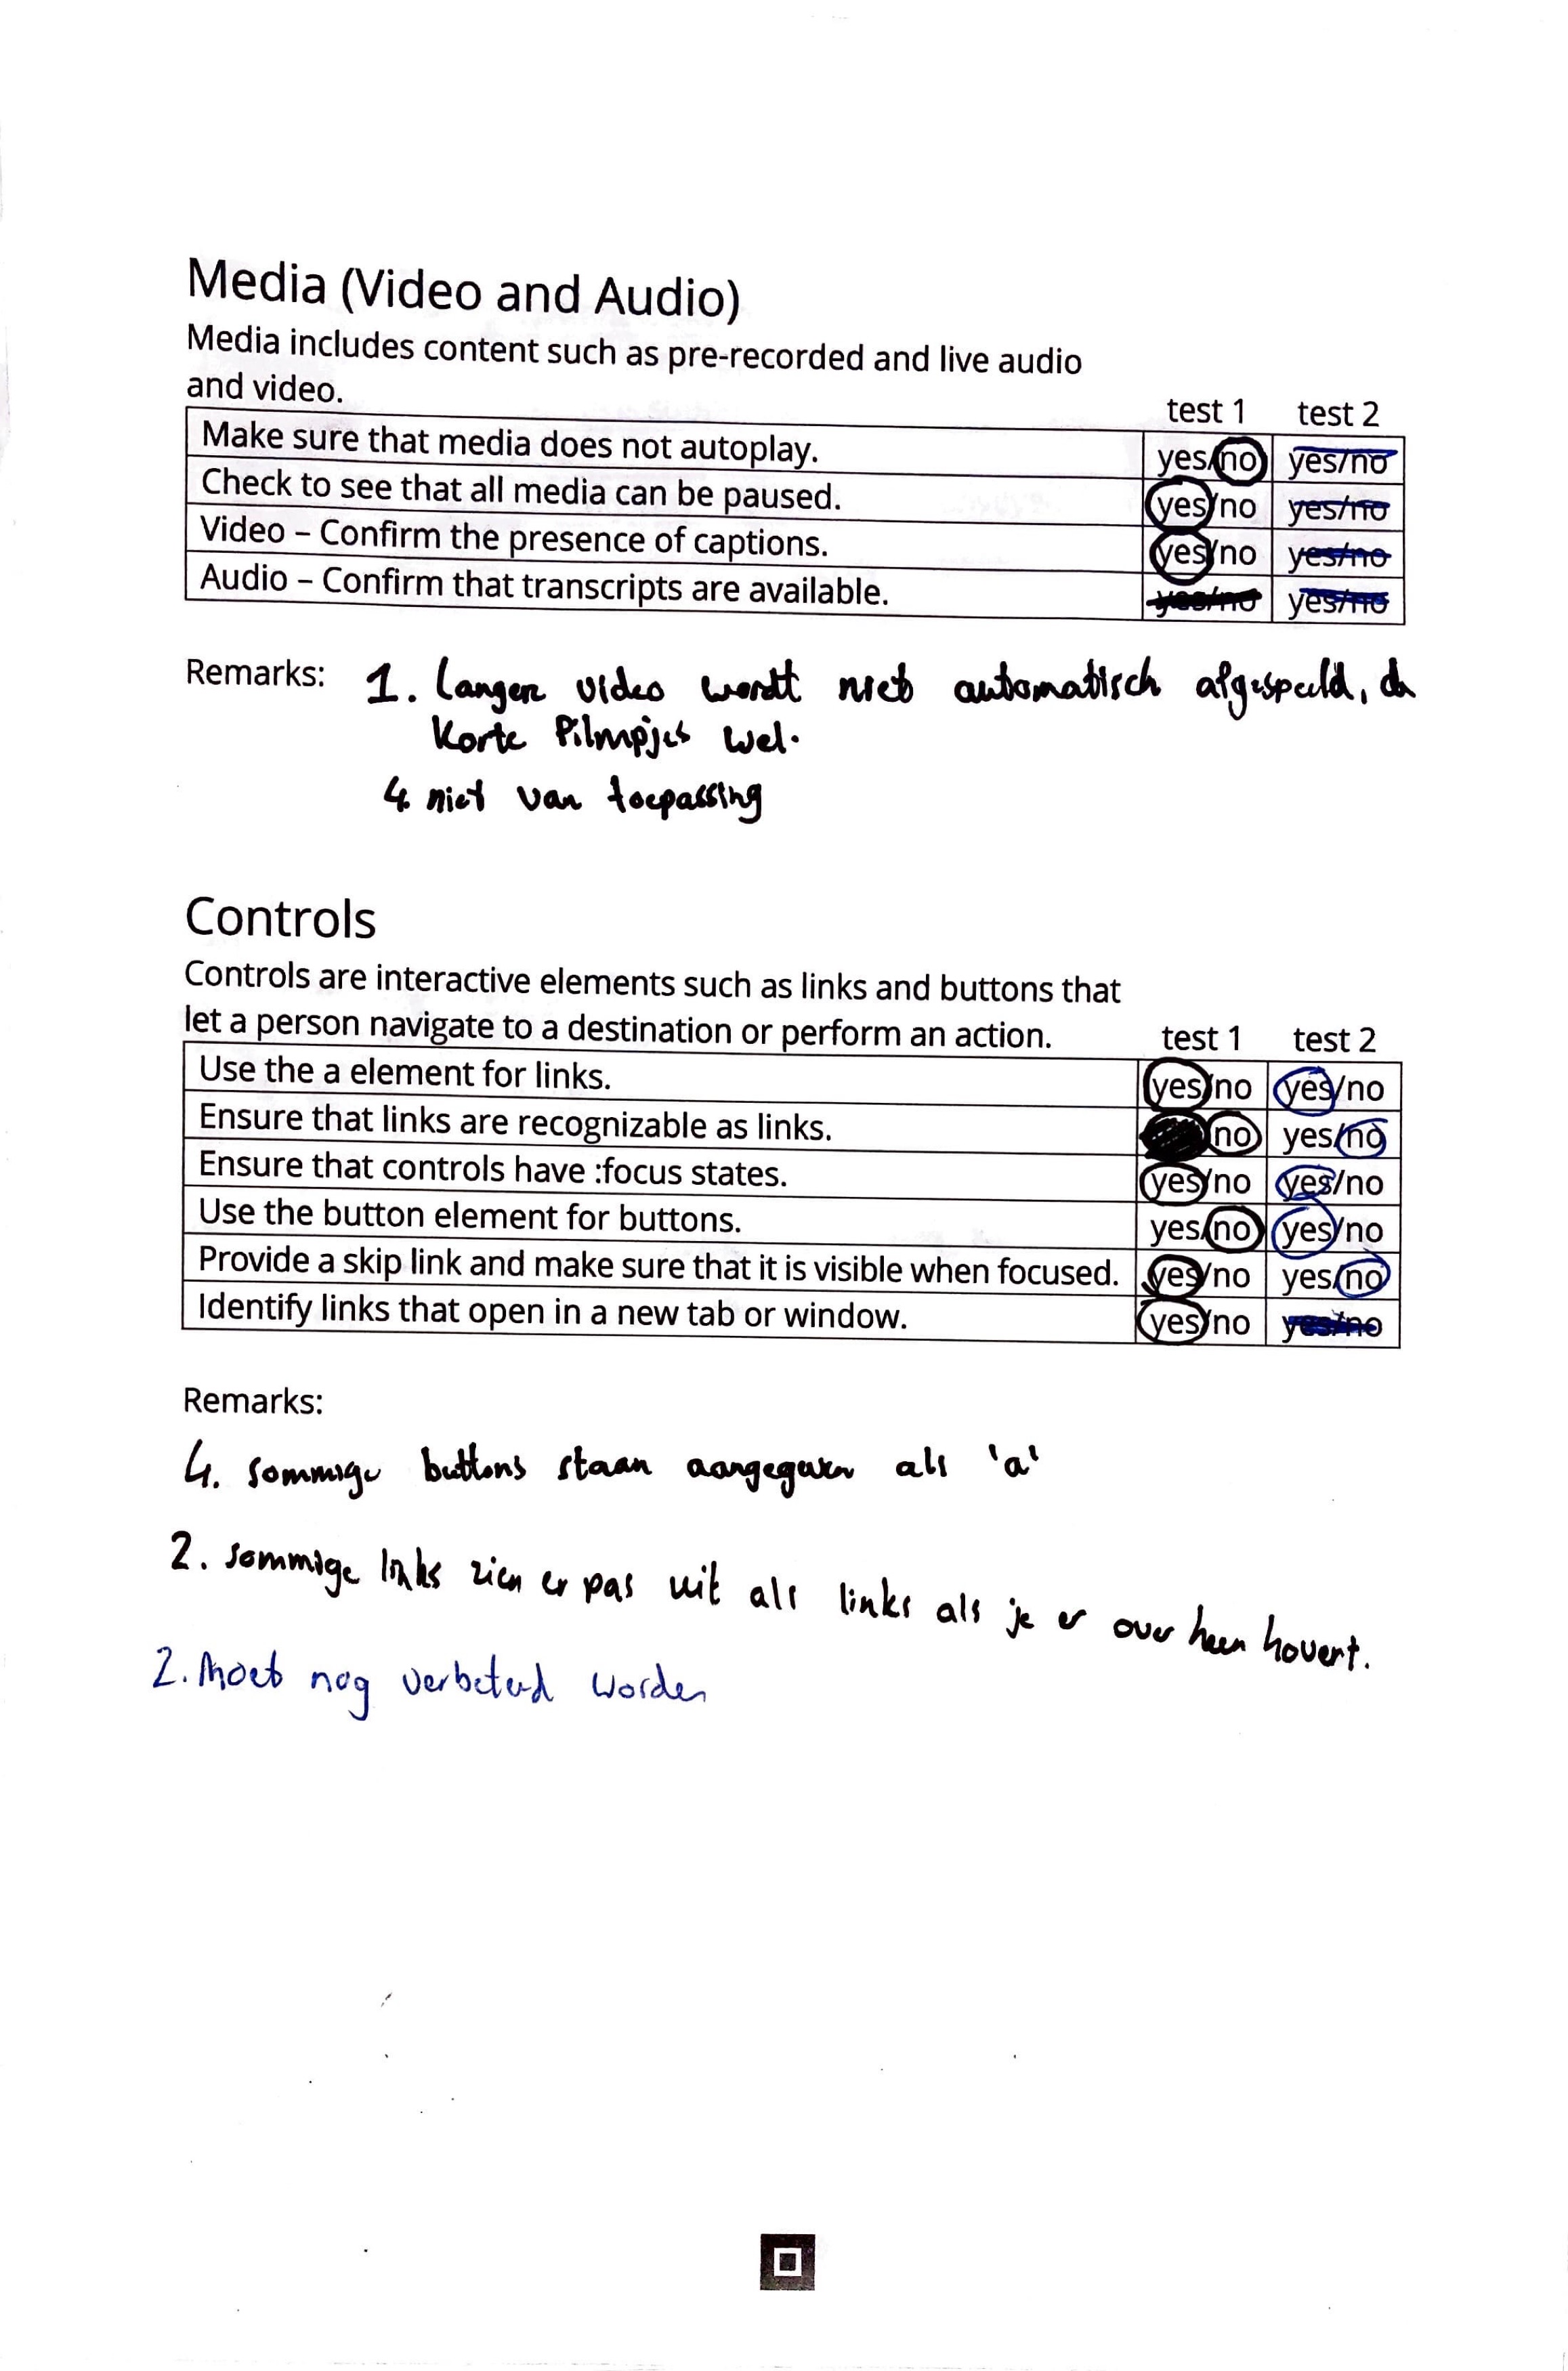 Media (Video and Audio)
Media includes content such as pre-recorded and live audio
and video.
test 1 test 2
Make sure that media does not autoplay. yes/no yes/no
Check to see that all media can be paused. yes/no yes/no
Video – Confirm the presence of captions. yes/no yes/no
Audio – Confirm that transcripts are available. yes/no yes/no
Remarks: 1. Langere video wordt niet automatisch afgespeeld, de
korte filmpjes wel.
4. niet van toepassing
Controls
Controls are interactive elements such as links and buttons that
let a person navigate to a destination or perform an action. test 1 test 2
Use the a element for links. yes/no yes/no
Ensure that links are recognizable as links. no yes/no
Ensure that controls have :focus states. yes/no yes/no
Use the button element for buttons. yes/no yes/no
Provide a skip link and make sure that it is visible when focused. yes/no yes/no
Identify links that open in a new tab or window. yes/no yes/no
Remarks:
4. sommige buttons staan aangegeven als 'a'
2. sommige links zien er pas uit als links als je er over heen hovert.
2. Moet nog verbeterd worden